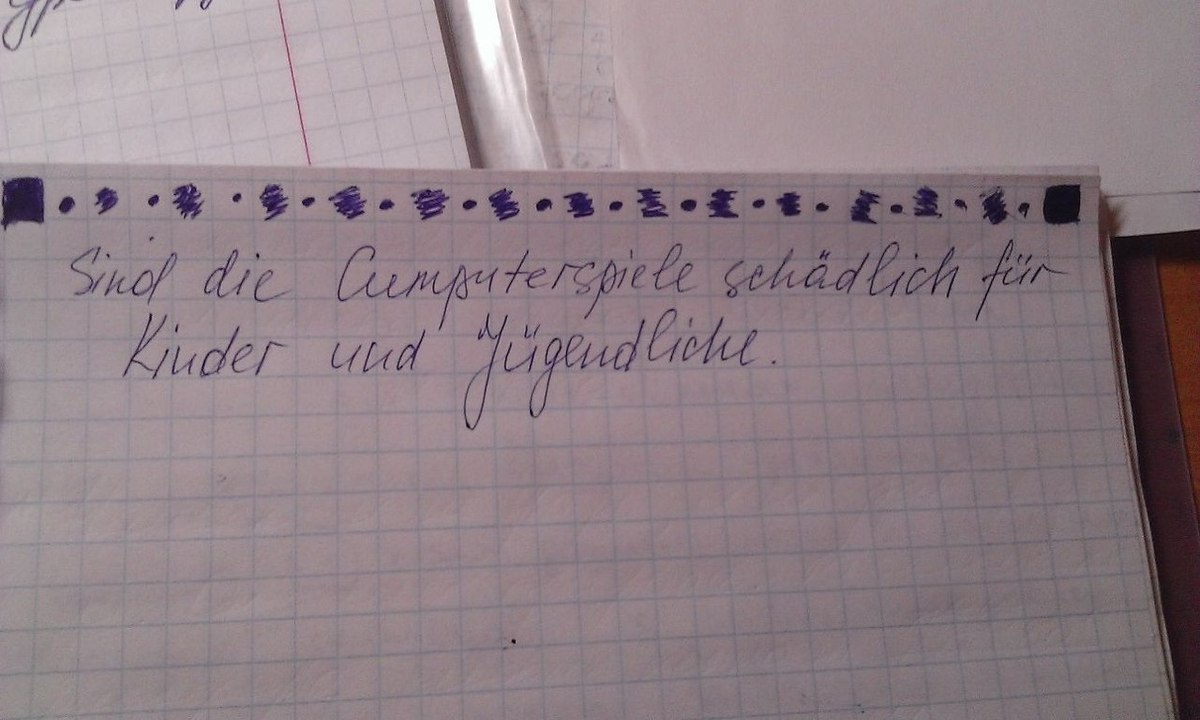 Sind die Cumputerspiele schädlich für
Kinder und Jügendliche.